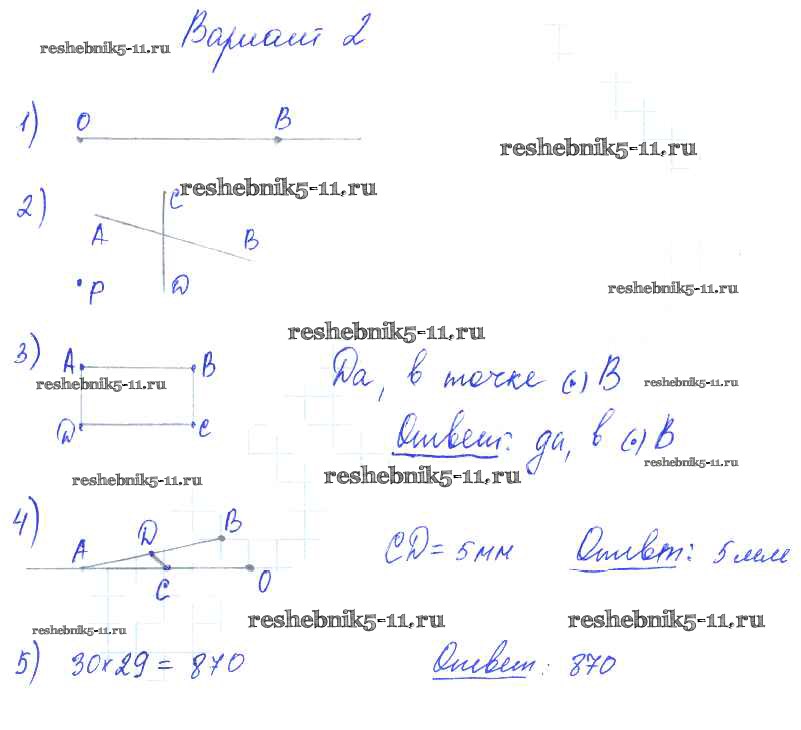 Вариант 2
reshebnik5-11.ru
1) O B
reshebnik5-11.ru
reshebnik5-11.ru
2) A C B D P
reshebnik5-11.ru
reshebnik5-11.ru
3) A B D C
Да, в точке (•) B
reshebnik5-11.ru
reshebnik5-11.ru
Ответ: да, в (•) B
reshebnik5-11.ru
reshebnik5-11.ru
reshebnik5-11.ru
4) A D B C O
CD = 5 мм Ответ: 5 мм
reshebnik5-11.ru
reshebnik5-11.ru
reshebnik5-11.ru
5) 30×29 = 870 Ответ: 870